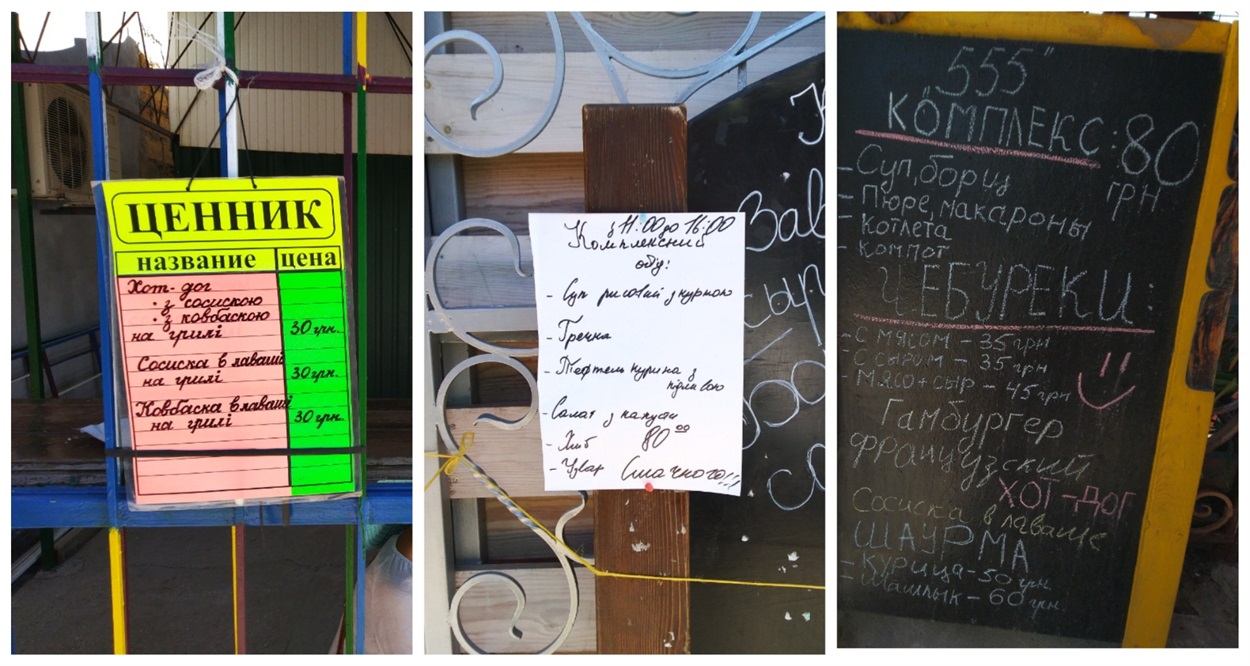 ЦЕННИК
название цена
Хот-дог
· з сосискою
· з ковбаскою
на грилі 30 грн.
Сосиска в лаваші
на грилі 30 грн.
Ковбаска в лаваші
на грилі 30 грн.
з 11:00 до 16:00
Комплексний
обід:
- Суп рисовий з куркою
- Гречка
- Тефтель курина з
підливою
- Салат з капусти
- Хліб 80 00
- Узвар Смачного!!!
555"
КОМПЛЕКС: 80
ГРН
- Суп, борщ
- Пюре, макароны
- Котлета
- Компот
ЧЕБУРЕКИ:
- С МЯСОМ - 35 грн
- С СЫРОМ - 35 грн
- МЯСО+СЫР - 45 грн
Гамбургер
французский
ХОТ-ДОГ
Сосиска в лаваше
ШАУРМА
- КУРИЦА - 50 грн.
- Шашлык - 60 грн.